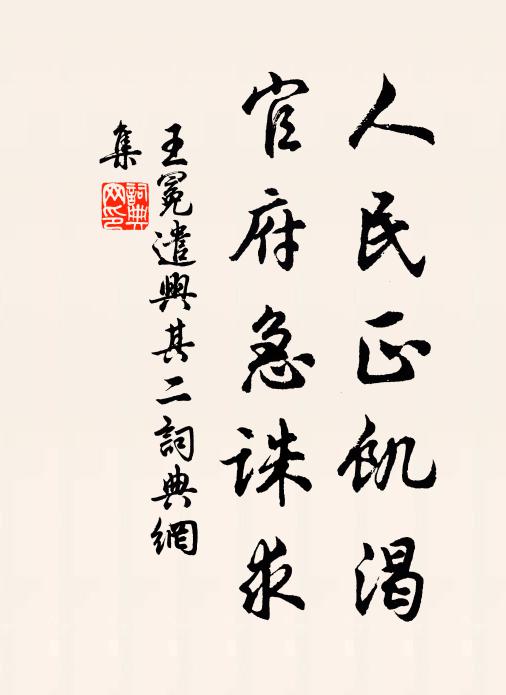 人民正飢渴
官府急誅求
王冕遣興其二詞典網
集
詞典
网印